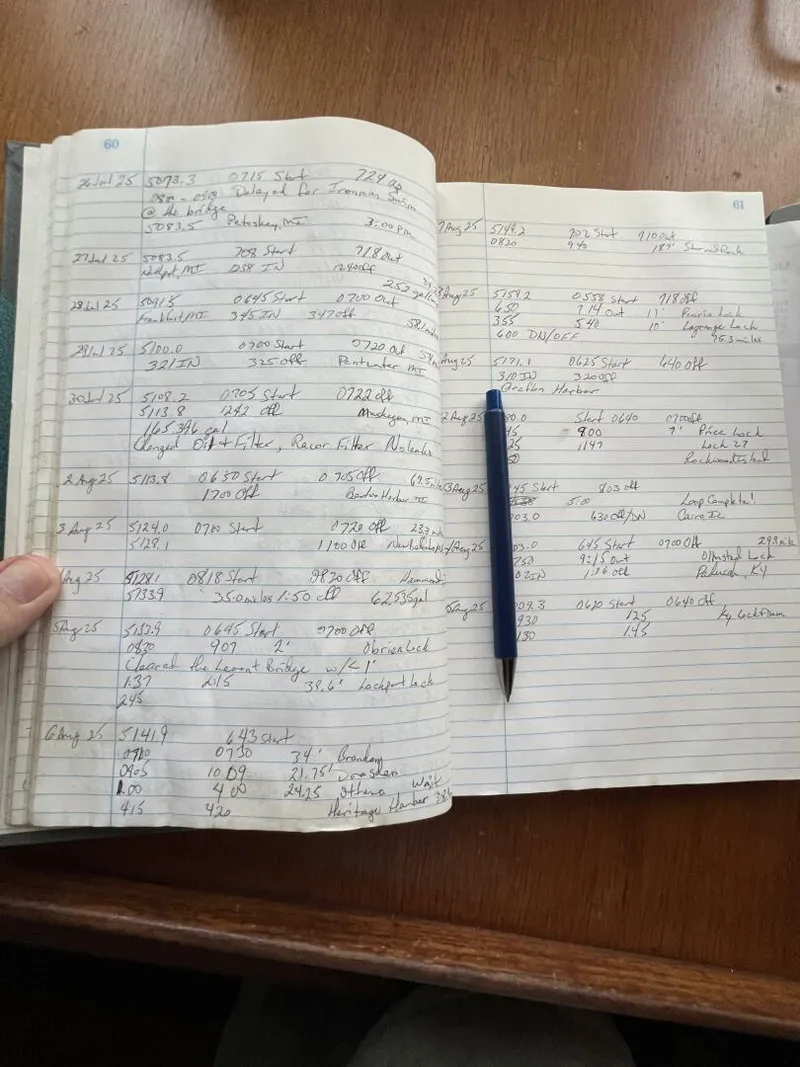 60
26 Jul 25 5073.3 0715 Start 724
0800 - 0900 Delayed for Ironman Swim
@ the bridge
5083.5 Petoskey, MI 3:00 pm
27 Jul 25 5083.5 708 Start 718 Out
MI 1238 IN 1240 Off
252
28 Jul 25 5091.5 0645 Start 0700 Out
Frankfort, MI 345 IN 347 Off
58.1 miles
29 Jul 25 5100.0 0700 Start 0720 Out
321/IN 325 Off Pentwater MI
30 Jul 25 5108.2 0705 Start 0722 Off
5113.8 1242 Off Muskegon, MI
165.396 gal
Changed Oil + Filter, Racor Filter No leaks
2 Aug 25 5113.8 0630 Start 0705 Off
1700 Off Benton Harbor MI
3 Aug 25 5124.0 0700 Start 0720 Off
5128.1 1100 Off
Aug 25 5128.1 0818 Start 0820 Off Hammond
5133.9 35.0 miles 1:50 Off 62.535 gal
5 Aug 25 5133.9 0645 Start 0700 Off
0830 907 2' Obrien Lock
Cleared the Lemont Bridge w/< 1'
1:37 2:15 39.6' Lockport Lock
245
6 Aug 25 5141.9 643 Start
0700 0730 34' Brandon
0905 10 09 21.75'
1.00 4 00 24.25 Wait
415 420 Heritage Harbor
61
7 Aug 25 5149.2 702 Start 710 Out
0820 940 Starved Rock
Aug 25 5159.2 0558 Start 718 Off
650 714 Out 11' Peoria Lock
355 5.40 10' Lagrange Lock
600 DN/OFF 95.3 miles
Aug 25 5171.1 0625 Start 640 Off
310 IN 320 Off
Grafton Harbor
2 Aug 25 80.0 Start 0640 0700 Off
45 800 7' Price Lock
25 1147 Lock 27
50
13 Aug 25 45 Start 803 Off
5:00 Loop Complete!
03.0 630 Off/DN Cairo, IL
Aug 25 03.0 645 Start 0700 Off
750 9:15 Out Olmsted Lock
02 IN 1:16 Off Paducah, KY
Aug 25 09.3 0620 Start 0640 Off
930 125 Ky Lock + Dam
130 1.45